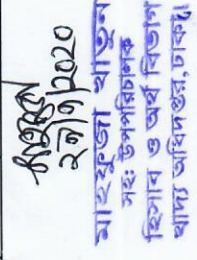 ২৯/৭/২০২০
মাহফুজা খাতুন
সহঃ উপপরিচালক
হিসাব ও অর্থ বিভাগ
খাদ্য অধিদপ্তর, ঢাকা।